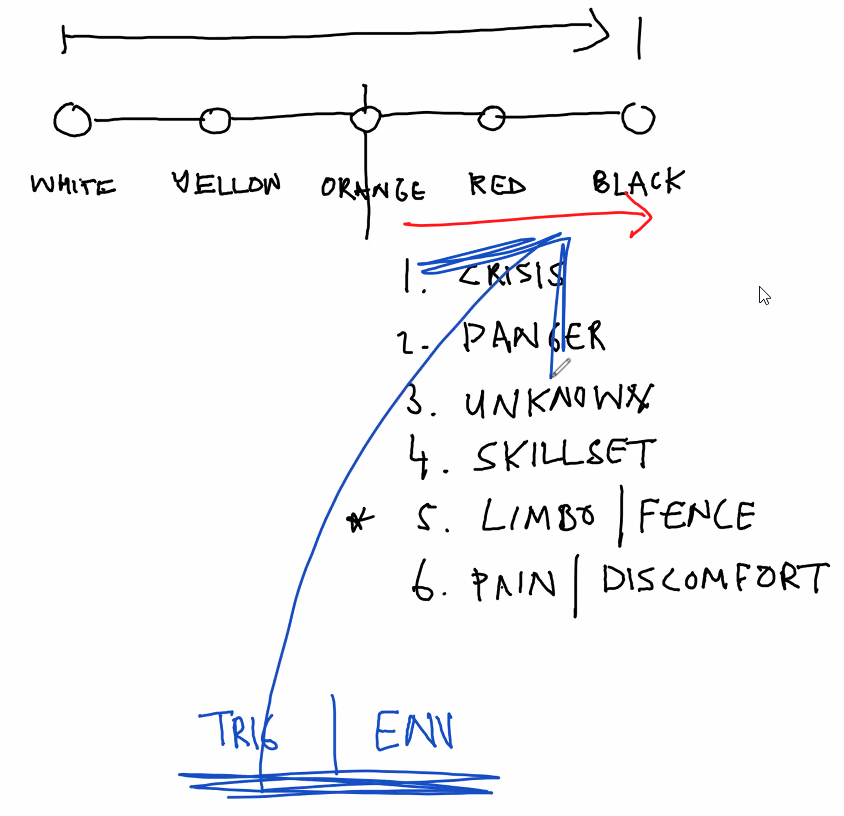 WHITE YELLOW ORANGE RED BLACK
1. CRISIS
2. DANGER
3. UNKNOWN
4. SKILLSET
* 5. LIMBO | FENCE
6. PAIN | DISCOMFORT
TRIG | ENV